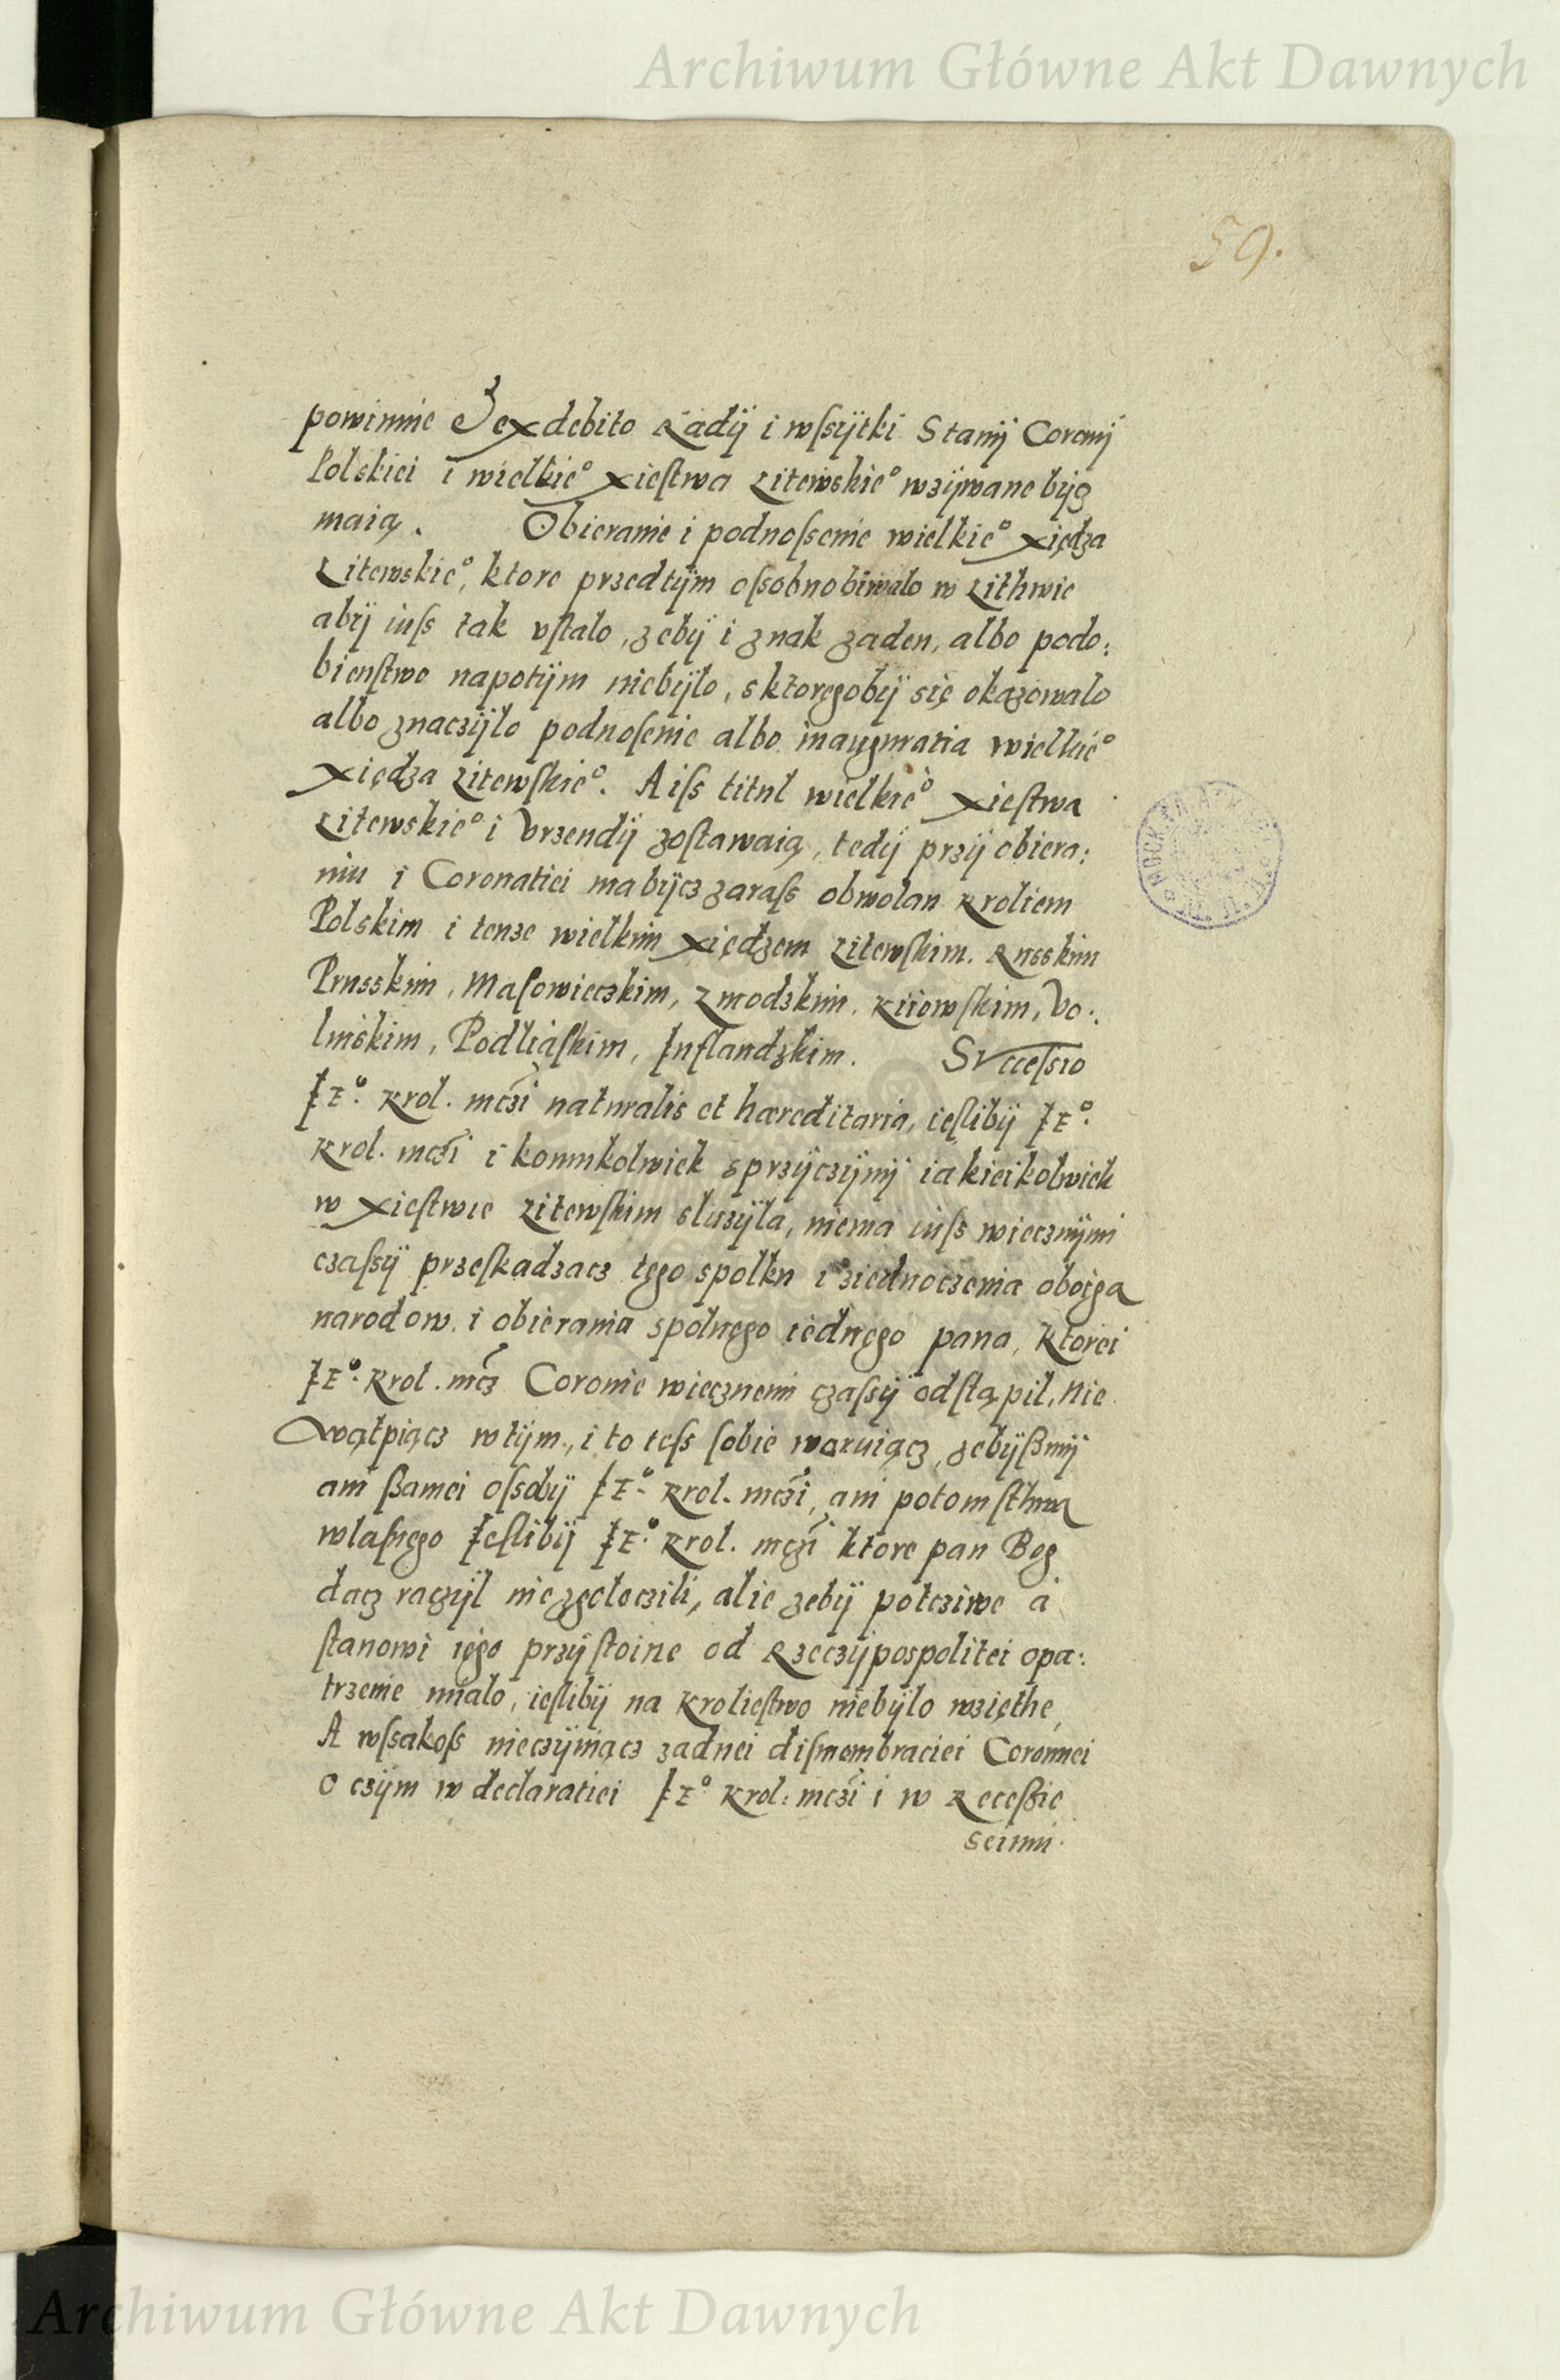 Archiwum Główne Akt Dawnych
59.
powinnie Jexdebito Radÿ i wſsÿtki Stanÿ Coronÿ
Polskiei i wielkie° xieſtwa Litewskie° wzÿwane bÿg
maią. Obieranie i podnoſsenie wielkie° xiędza
Litewskie°, ktore przedtÿm oſsobno biwalo w Lithwie
abÿ iuſs tak vſtalo, zebÿ i znak zaden, albo podo:
bienſtwo napotÿm niebÿlo, s ktoręgobÿ się okazowalo
albo znaczÿlo podnoſenie albo inauguratia wielkie°
xiędza Litewſkie°. A iſs titul wielkie° xieſtwa
Litewskie° i Vrzendÿ zoſtawaią, tedÿ przÿ obiera:
niu i Coronatiei ma bÿcz zaraſs obwolan Kroliem
Polskim i tenze wielkim xiędzem Litewſkim. Russkim
Prusskim, Maſowieczkim, Zmodzkim, Kiiowſkim, Vo:
linskim, Podliaſkim, Inflandzkim. Succeſsio
IE°. Krol. mczi naturalis et hæreditaria, ieſlibÿ IE°.
Krol. mczi i komukolwiek s przÿczÿnÿ iakieikolwiek
w xieſtwie Litewſkim sluzÿla, niema iuſs wiecznÿmi
czaſsÿ przeſkadzacz tęgo spolku i ziednoczenia oboięga
narodow. i obierania spolnęgo iednęgo pana, ktorei
IE°. Krol. mcz Coronie wiecznemi czaſsÿ odſtąpil, nie
wątpiącz w tÿm, i to teſs ſobie waruiącz, zebÿßmÿ
ani ßamei oſsobÿ IE°. Krol. mczi, ani potomſthwa
wlaſnęgo Ieſlibÿ IE°. Krol. mczi ktore pan Bog
dacz raczÿl niezęloczili, alie zebÿ potcziwe a
ſtanowi ięgo przÿſtoine od Rzeczÿpospolitei opa:
trzenie mialo, ieſlibÿ na Krolieſtwo niebÿlo wzięthe,
A wſsakoſs nieczÿniącz zadnei diſmembraciei Coronnei
O czÿm w declaratiei IE° Krol: mczi i w Receßie
seimu
Archiwum Główne Akt Dawnych